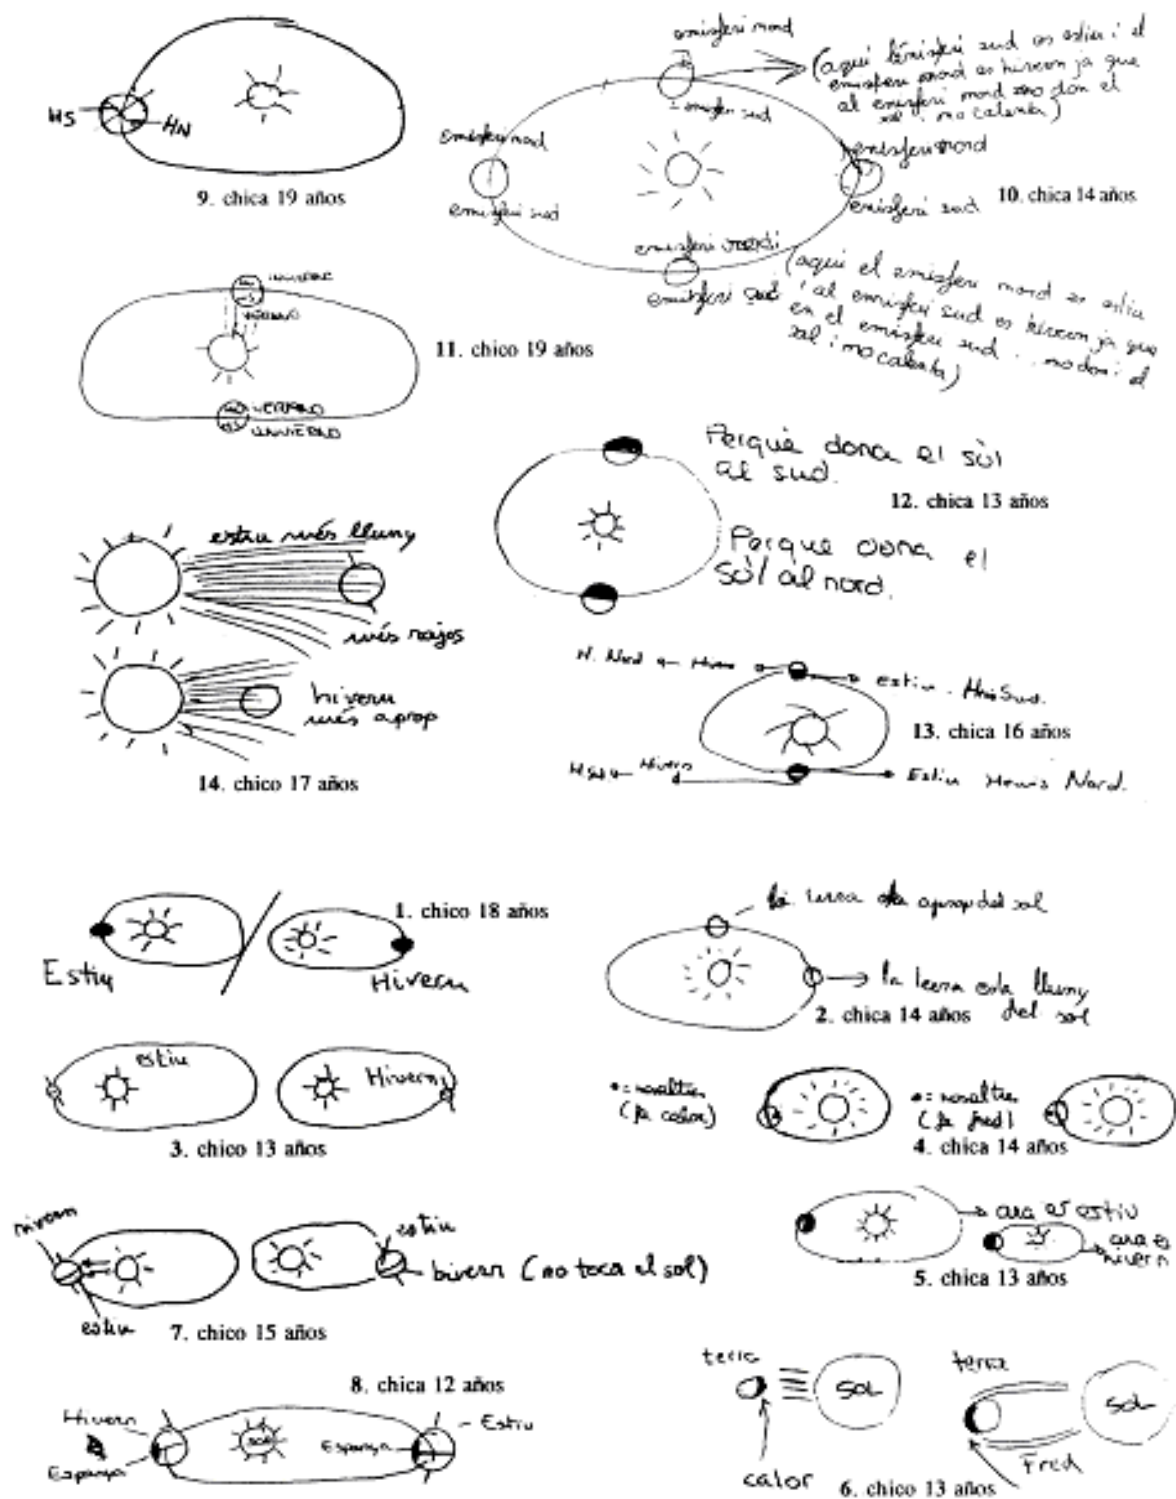 HS
HN
9. chica 19 años
emisferi nord
emisferi sud
(aquí l'emisferi sud es estiu i el
emisferi nord es hivern ja que
al emisferi nord no don el
sol i no calenta)
emisferi nord
emisferi sud
emisferi nord
emisferi sud
10. chica 14 años
emisferi nord
emisferi sud
(aquí el emisferi nord es estiu
i al emisferi sud es hivern ja que
en el emisferi sud no don el
sol i no calenta)
INVIERNO
VERANO
11. chico 19 años
VERANO
INVIERNO
Perquè dona el sòl
al sud.
12. chica 13 años
Porque dona el
sòl al nord.
estiu més lluny
més rajos
hivern
més aprop
14. chico 17 años
H. Nord Hivern
estiu. Hemis Sud.
13. chica 16 años
H. Sud Hivern
Estiu Hemis Nord.
1. chico 18 años
Estiu
Hivern
la terra esta aprop del sol
la terra esta lluny
del sol
2. chica 14 años
estiu
Hivern
3. chico 13 años
•= nosaltres
(fa calor)
•= nosaltres
(fa fred)
4. chica 14 años
ara es estiu
ara es
hivern
5. chica 13 años
hivern
estiu
estiu
hivern (no toca el sol)
7. chico 15 años
8. chica 12 años
Hivern
Espanya
SOL
Espanya
Estiu
terra
SOL
calor
terra
SOL
Fred
6. chico 13 años